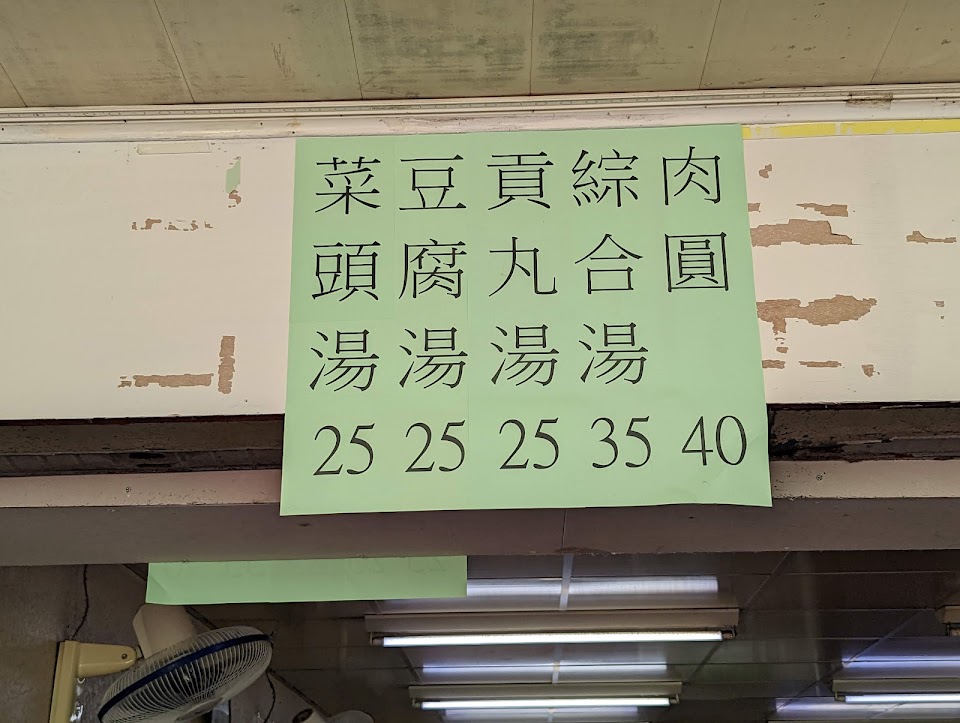 肉圓 40
綜合湯 35
貢丸湯 25
豆腐湯 25
菜頭湯 25